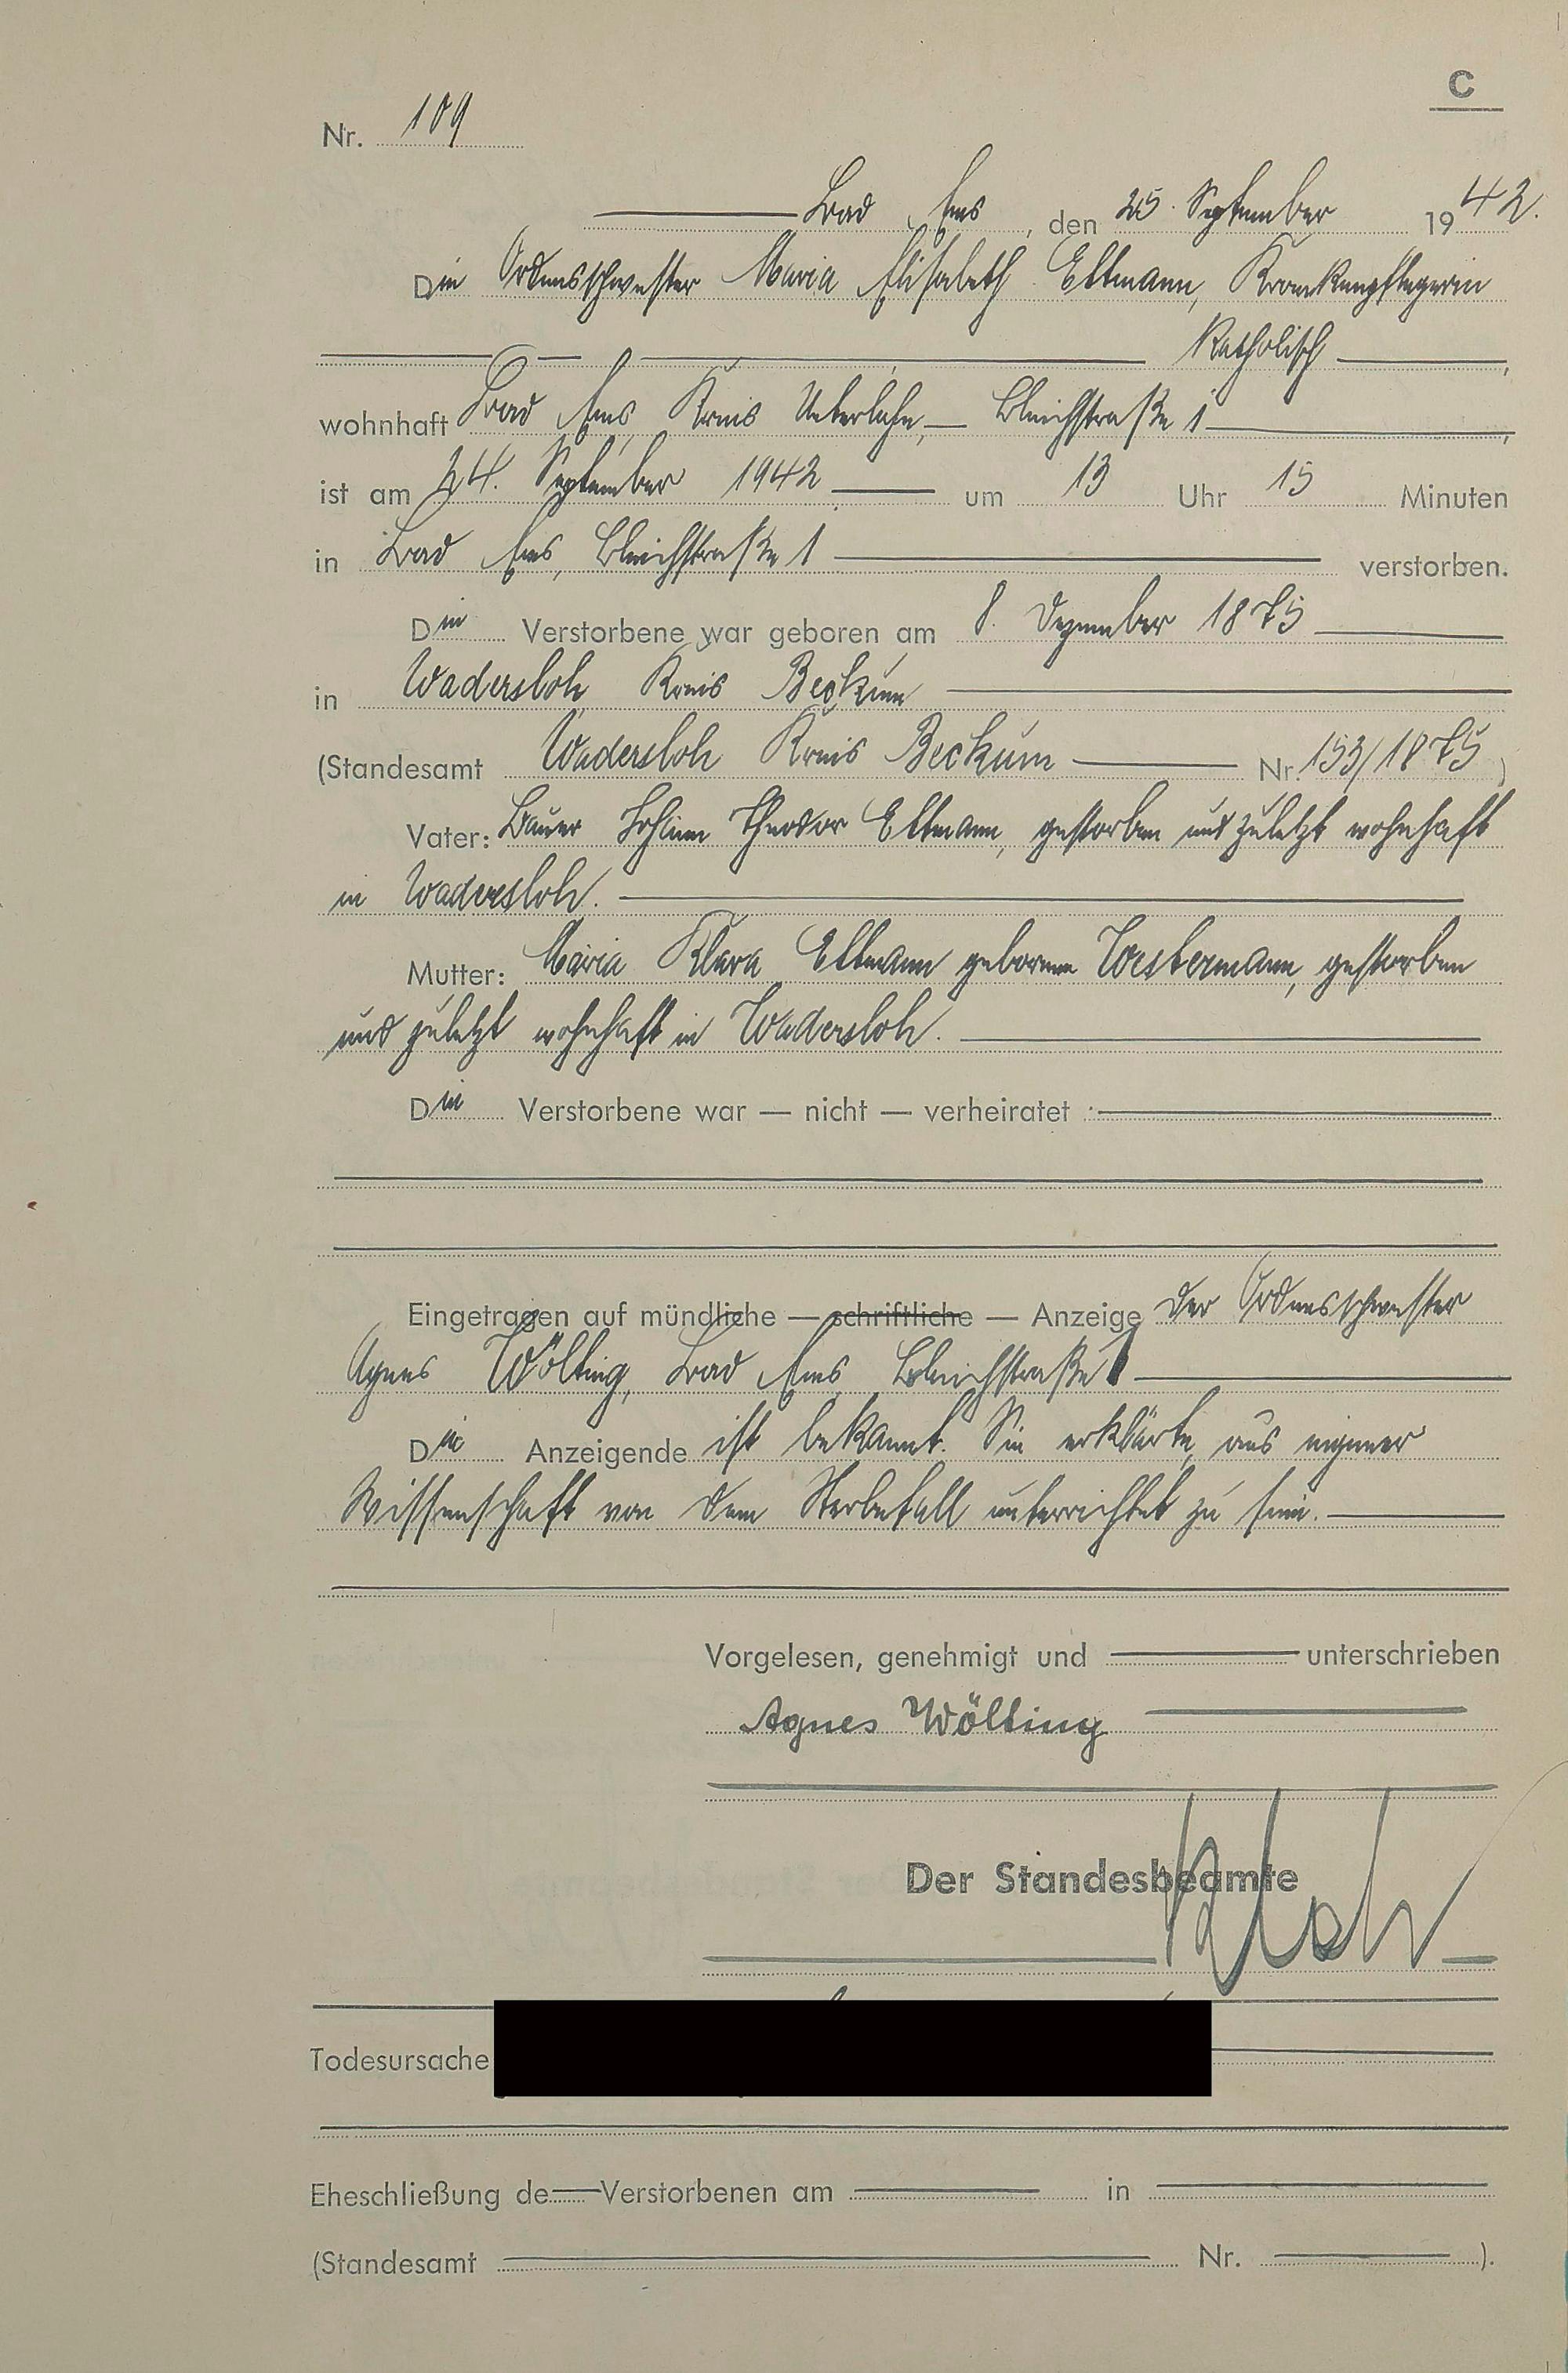 C
Nr. 109
Bad Ems, den 25. September 1942.
Die Ordensschwester Maria Elisabeth Eltmann, Krankenpflegerin
katholisch,
wohnhaft Bad Ems, Kreis Unterlahn, Bleichstraße 1,
ist am 24. September 1942 um 13 Uhr 15 Minuten
in Bad Ems, Bleichstraße 1 verstorben.
Die Verstorbene war geboren am 8. Dezember 1875
in Wadersloh Kreis Beckum
(Standesamt Wadersloh Kreis Beckum Nr. 153/1875)
Vater: Bauer Theodor Eltmann, gestorben und zuletzt wohnhaft
in Wadersloh.
Mutter: Maria Klara Eltmann geborene Westermann, gestorben
und zuletzt wohnhaft in Wadersloh.
Die Verstorbene war — nicht — verheiratet
Eingetragen auf mündliche — schriftliche — Anzeige der Ordensschwester
Agnes Wölting, Bad Ems, Bleichstraße 1
Die Anzeigende ist bekannt. Sie erklärte, aus eigener
Wissenschaft von dem Sterbefall unterrichtet zu sein.
Vorgelesen, genehmigt und unterschrieben
Agnes Wölting
Der Standesbeamte
Todesursache
Eheschließung de Verstorbenen am in
(Standesamt Nr. ).